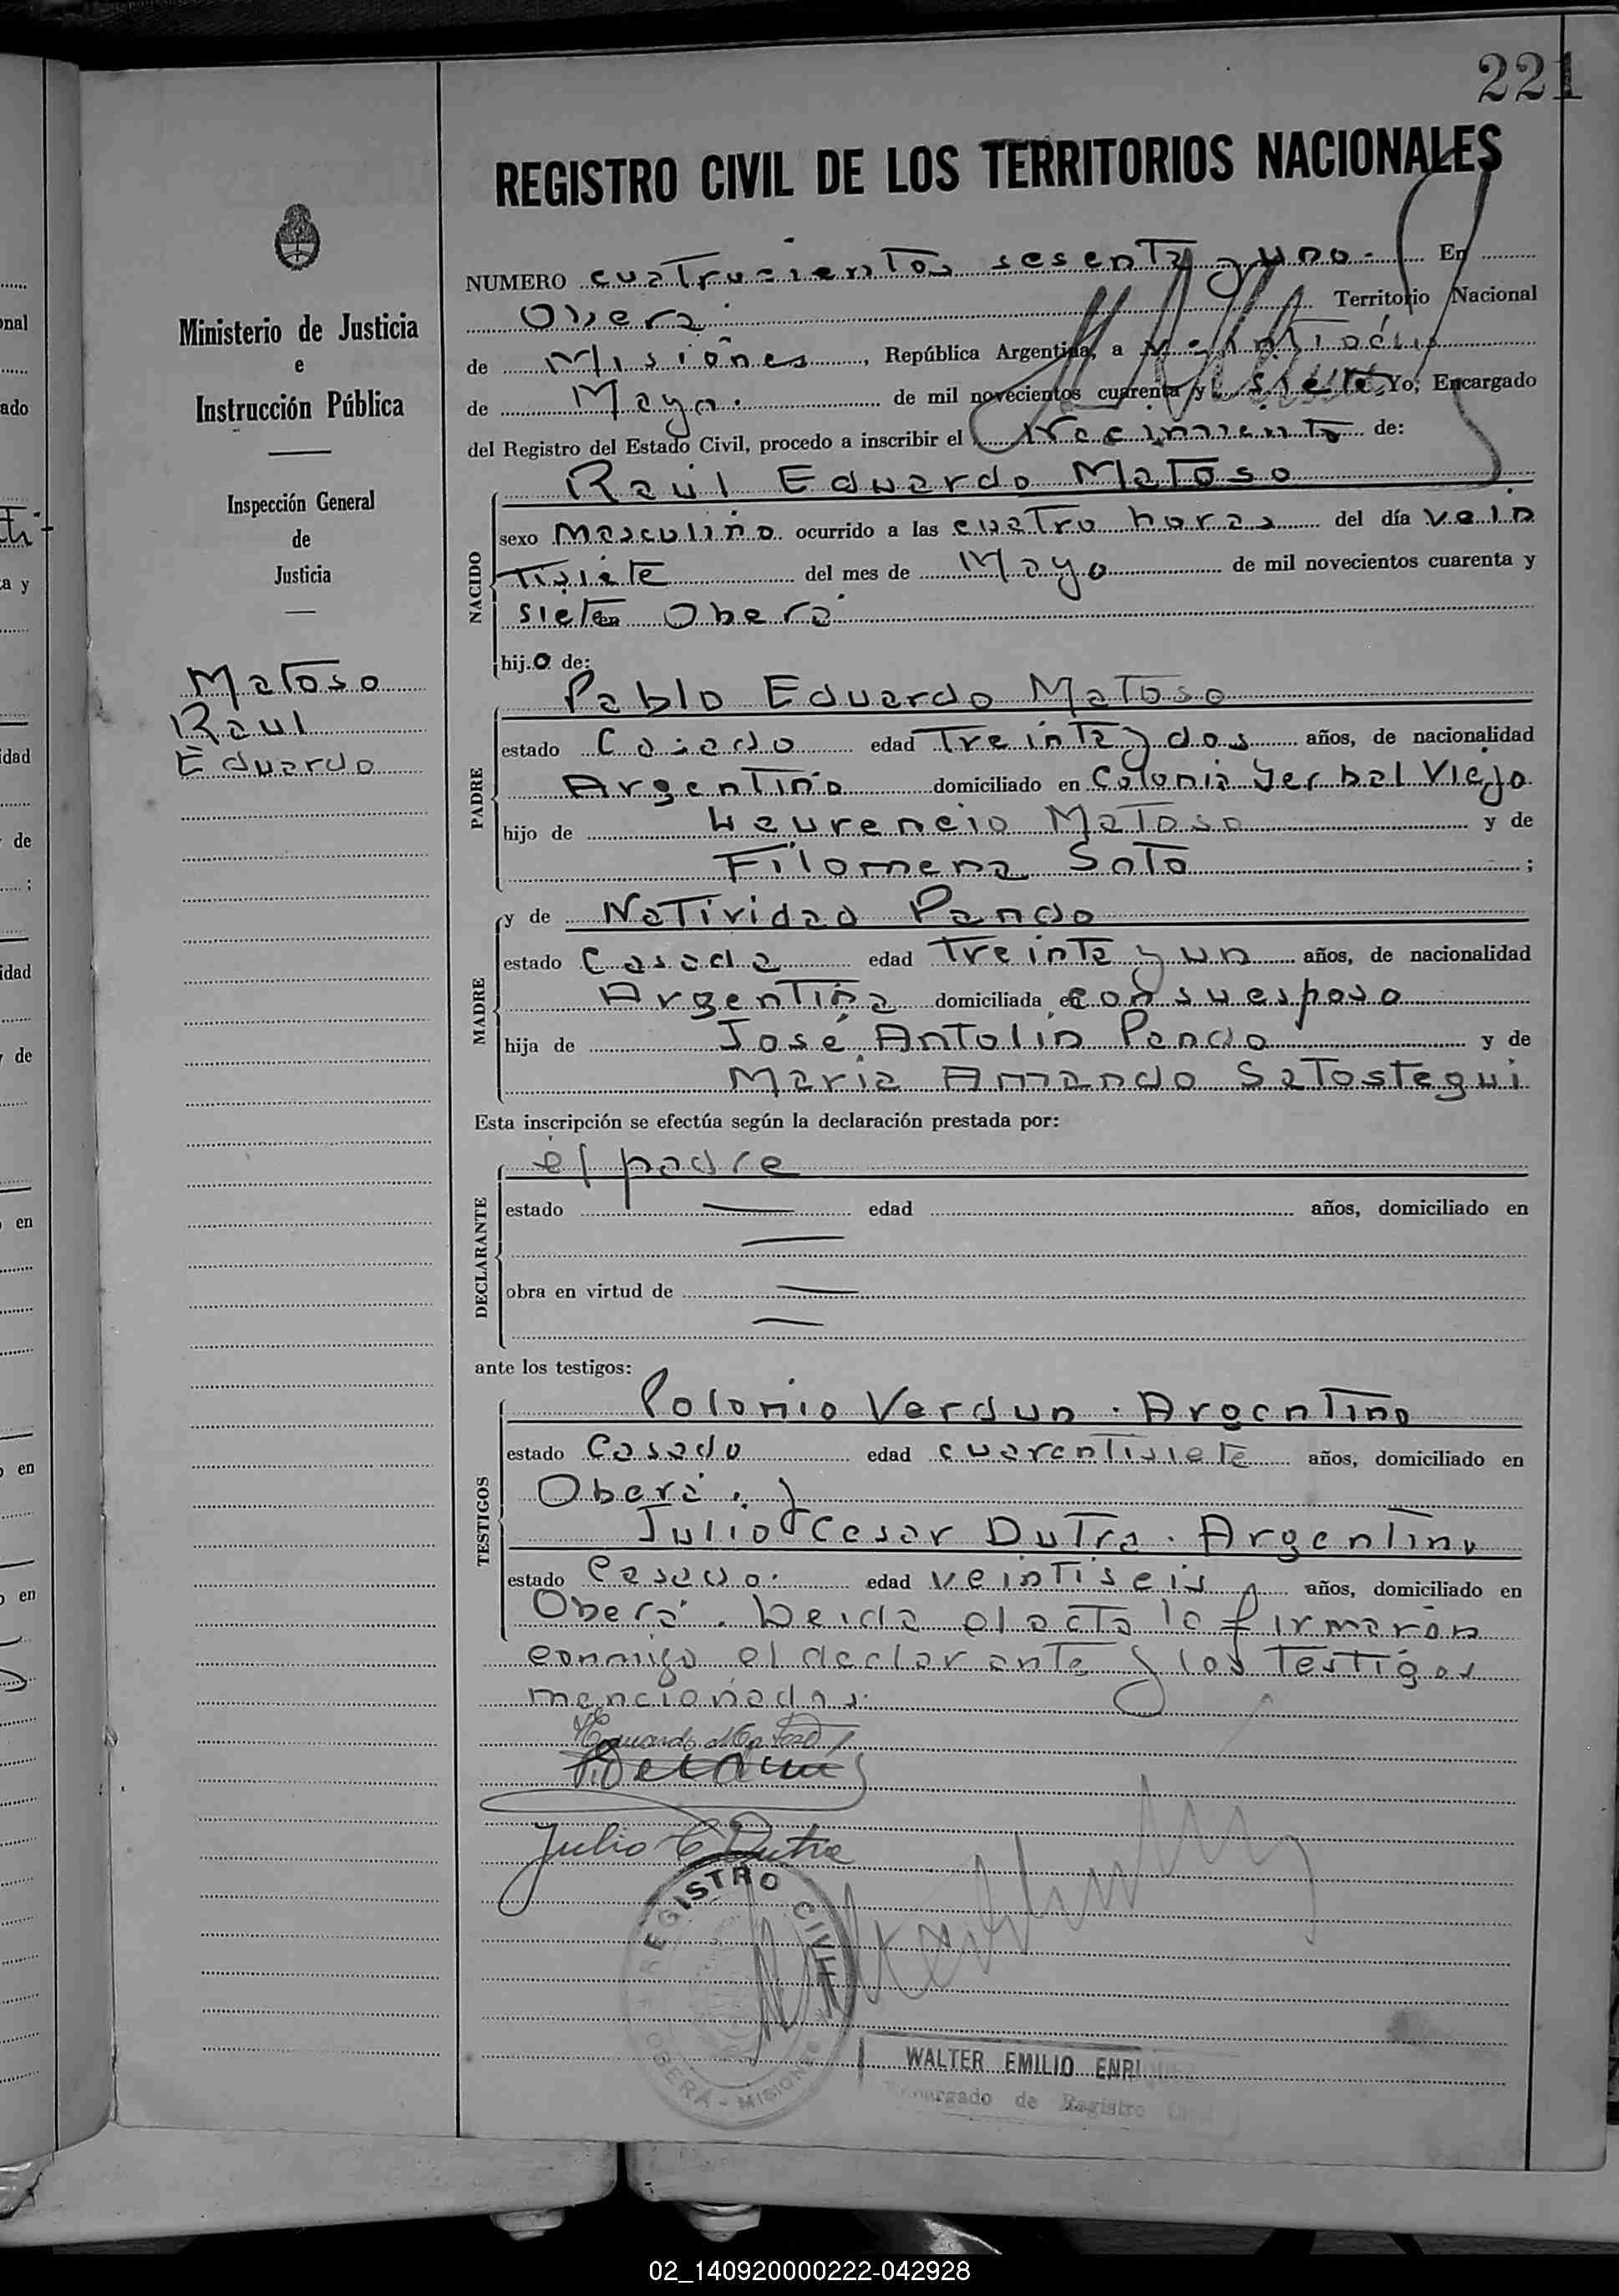 221
REGISTRO CIVIL DE LOS TERRITORIOS NACIONALES
NUMERO cuatrocientos sesenta y uno.- En
Oberá Territorio Nacional
de Misiones, República Argentina, a veintiocho
de Mayo. de mil novecientos cuarenta y siete Yo, Encargado
del Registro del Estado Civil, procedo a inscribir el Nacimiento de:
Raúl Eduardo Matoso
NACIDO
sexo Masculino ocurrido a las cuatro horas del día vein
tisiete del mes de Mayo de mil novecientos cuarenta y
siete en Oberá
hijo de:
Pablo Eduardo Matoso
PADRE
estado Casado edad Treinta y dos años, de nacionalidad
Argentino domiciliado en Colonia Yerbal Viejo
hijo de Laurencio Matoso y de
Filomena Soto ;
y de Natividad Pando
MADRE
estado Casada edad Treinta y un años, de nacionalidad
Argentina domiciliada en con su esposo
hija de José Antolin Pando y de
Maria Amando Satostegui
Esta inscripción se efectúa según la declaración prestada por:
el padre
DECLARANTE
estado edad años, domiciliado en
obra en virtud de
ante los testigos:
Polonio Verdun. Argentino
TESTIGOS
estado Casado edad cuarentisiete años, domiciliado en
Oberá. y
Julio Cesar Dutra. Argentino
estado Casado. edad veintiseis años, domiciliado en
Oberá. Leida el acta la firmaron
conmigo el declarante y los testigos
mencionados.
Eduardo Matoso
Julio C Dutra
REGISTRO CIVIL
OBERA - MISIONES
WALTER EMILIO ENRI
Encargado de Registro
Ministerio de Justicia
e
Instrucción Pública
Inspección General
de
Justicia
Matoso
Raul
Eduardo
02_140920000222-042928